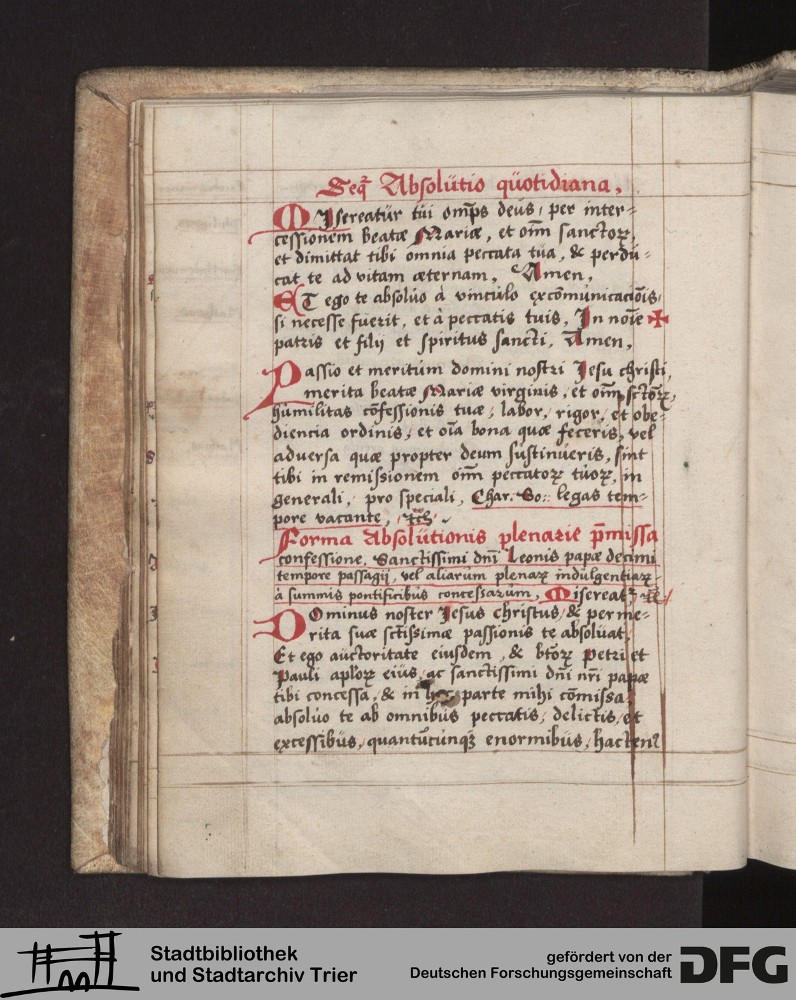 Seqr̃ Absolutio quotidiana,
MIsereatur tui omp̄s deus, per inter-
cessionem beatæ Mariæ, et om̄ sanctoꝝ,
et dimittat tibi omnia peccata tua, & perdu-
cat te ad vitam æternam, Amen,
ET ego te absoluo à vinculo excōmunicaciōis,
si necesse fuerit, et à peccatis tuis, In noīe ✠
patris et filij et spiritus sancti, Amen,
Passio et meritum domini nostri Jesu christi,
merita beatæ Mariæ virginis, et om̄ sctōꝝ,
humilitas cōfessionis tuæ, labor, rigor, et obe-
diencia ordinis, et oīa bona quæ feceris, vel
aduersa quæ propter deum sustinueris, sint
tibi in remissionem om̄ peccatoꝝ tuoꝝ, in
generali, pro speciali, Char. So:: legas tem-
pore vacante,
Forma Absolutionis plenarie p̄missa
confessione, Sanctissimi dn̄i Leonis papæ decimi
tempore passagij, vel aliarum plenaꝝ indulgentiaꝝ
à summis pontificibus concessarum, Misereatꝛ
DOminus noster Jesus christus, & per me-
rita suæ sctissimæ passionis te absoluat,
Et ego auctoritate eiusdem, & btōꝝ Petri et
Pauli aplōꝝ eius, ac sanctissimi dn̄i nr̄i papæ
tibi concessa, & in hac parte mihi cōmissa,
absoluo te ab omnibus peccatis, delictis, et
excessibus, quantūcunqꝫ enormibus, hacten9
Stadtbibliothek
und Stadtarchiv Trier
gefördert von der
Deutschen Forschungsgemeinschaft
DFG